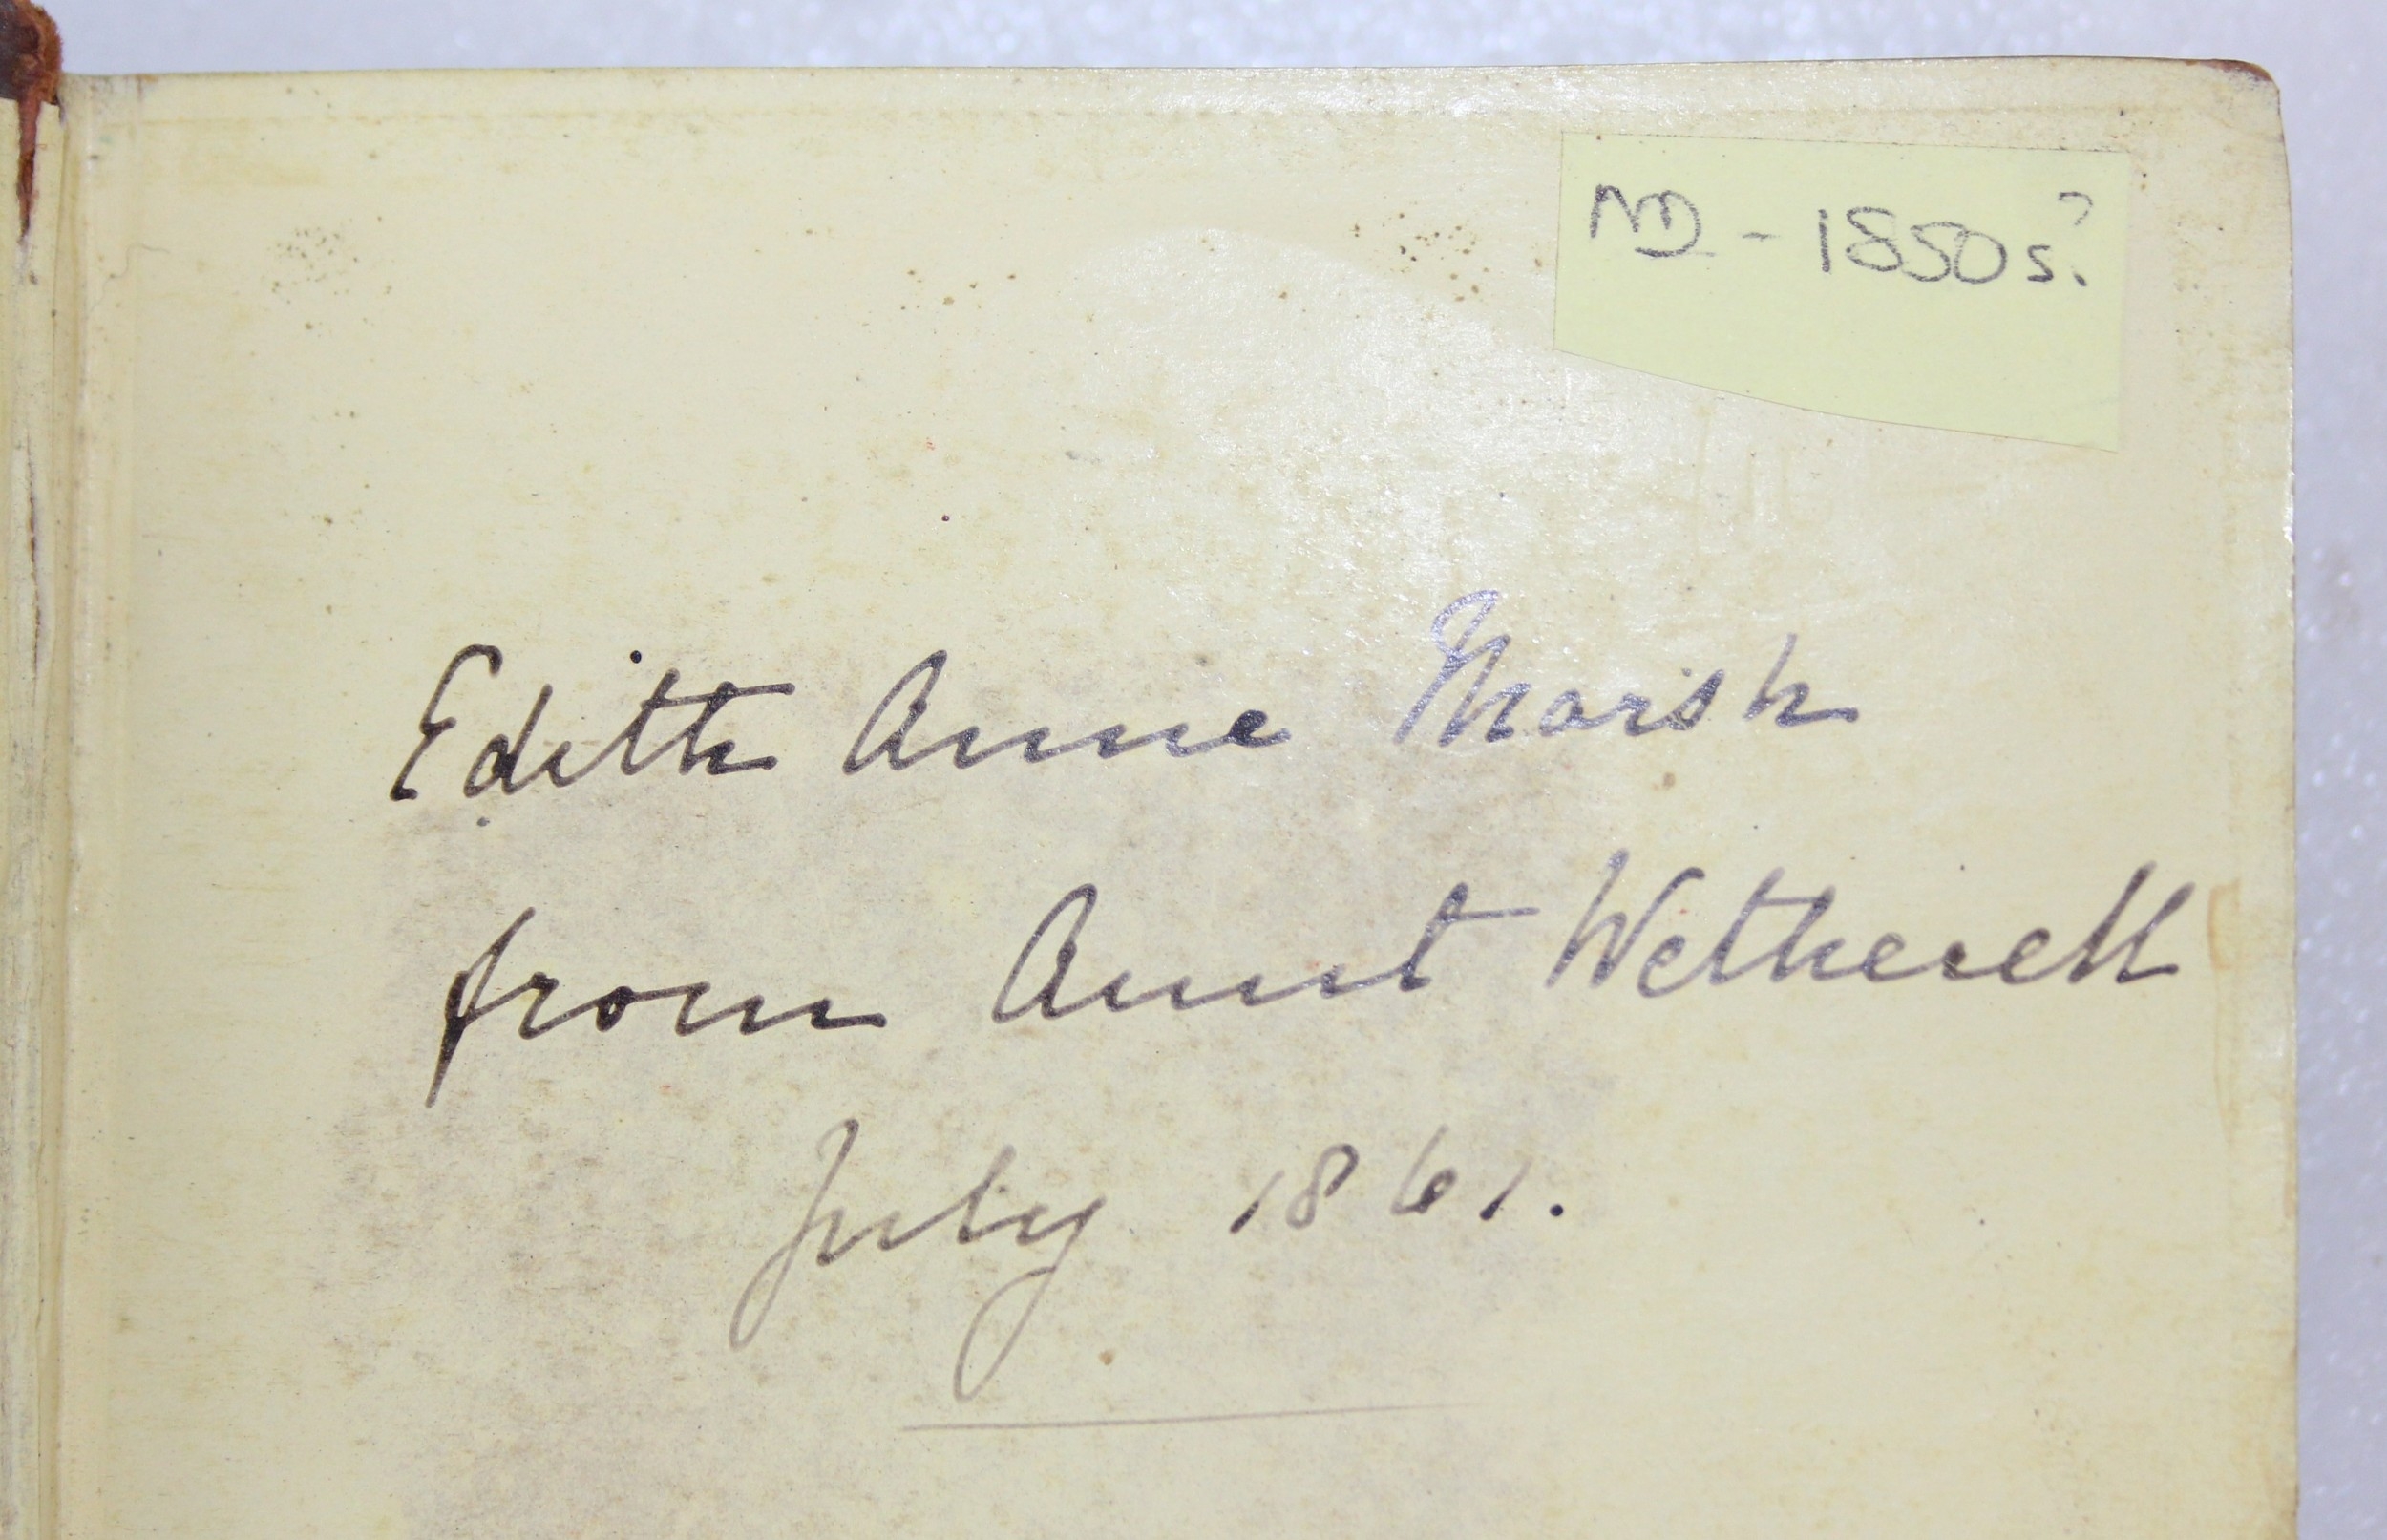 ND - 1850s?
Edith Anne Marsh
from Aunt Wetherell
July 1861.